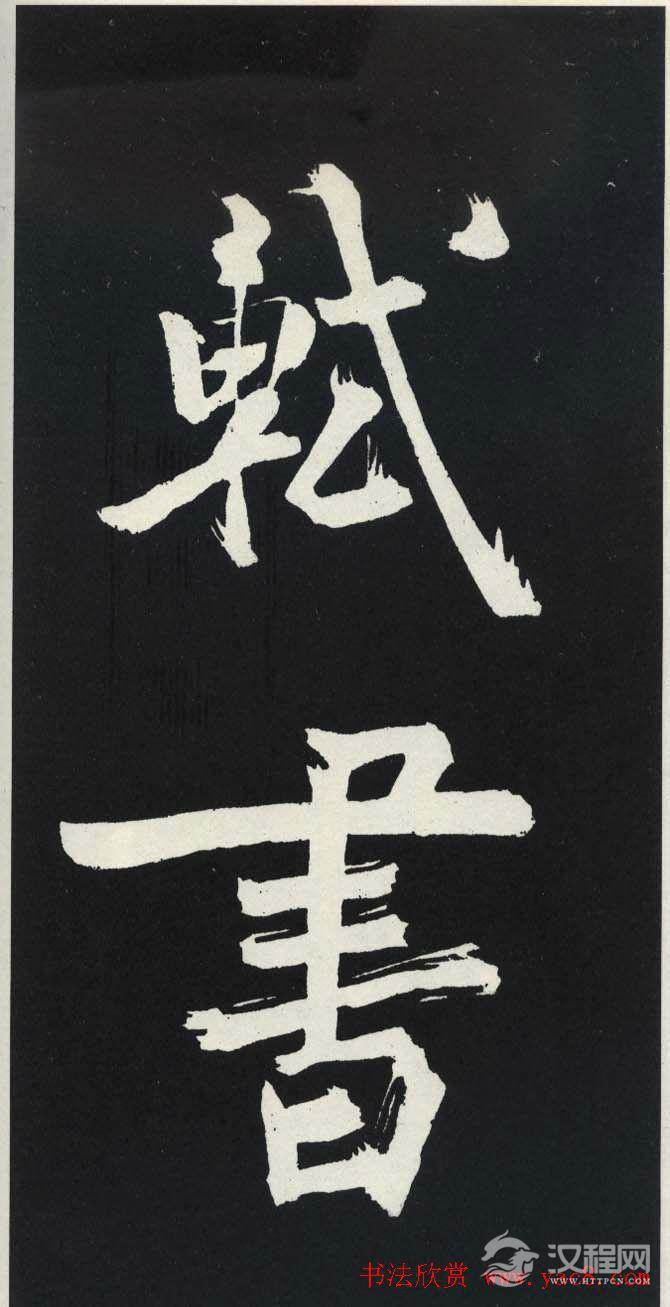 軾
書
汉程网
书法欣赏
WWW.HTTPCN.COM